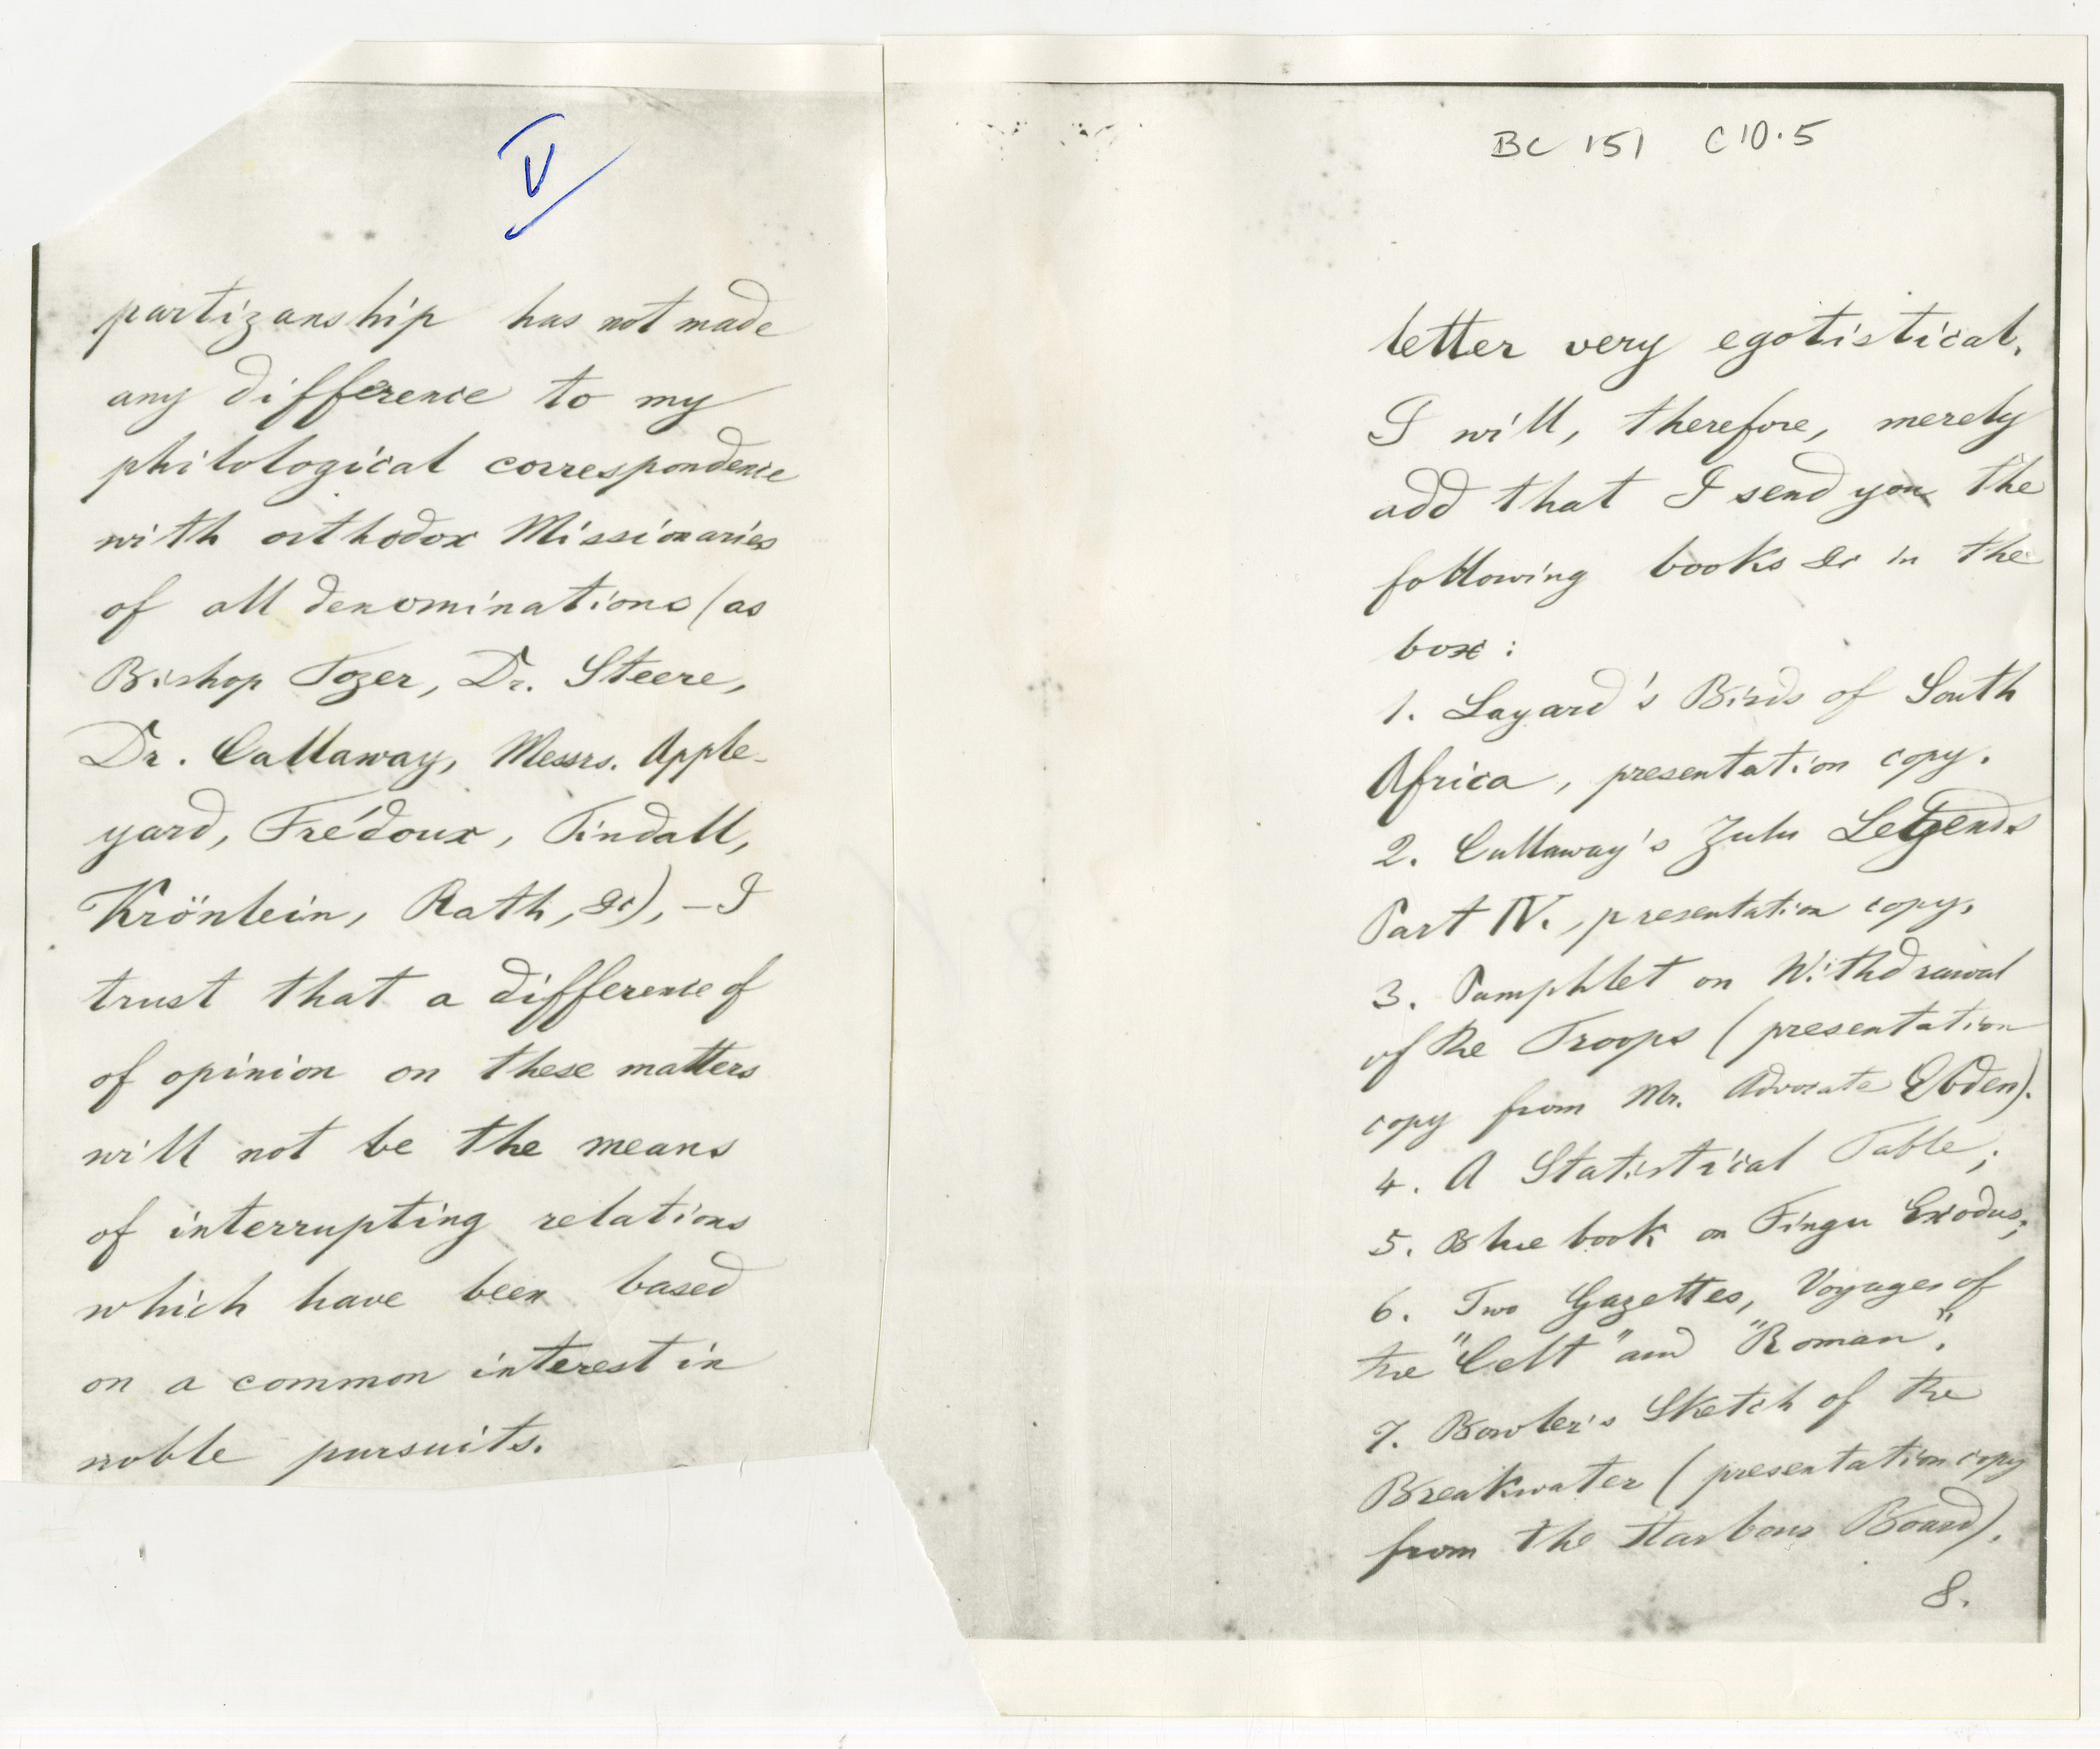 V
partizanship has not made
any difference to my
philological correspondence
with orthodox Missionaries
of all denominations (as
Bishop Tozer, Dr. Steere,
Dr. Callaway, Messrs. Apple-
yard, Frédoux, Tindall,
Krönlein, Rath, &c), – I
trust that a difference of
of opinion on these matters
will not be the means
of interrupting relations
which have been based
on a common interest in
noble pursuits.
BC 151 C10.5
letter very egotistical.
I will, therefore, merely
add that I send you the
following books &c in the
box:
1. Layard's Birds of South
Africa, presentation copy.
2. Callaway's Zulu Legends
Part IV., presentation copy.
3. Pamphlet on Withdrawal
of the Troops (presentation
copy from Mr. Advocate Ebden).
4. A Statistical Table;
5. Blue book on Fingu Exodus;
6. Two Gazettes, Voyages of
the "Celt" and "Roman".
7. Bowler's Sketch of the
Breakwater (presentation copy
from the Harbour Board).
8.